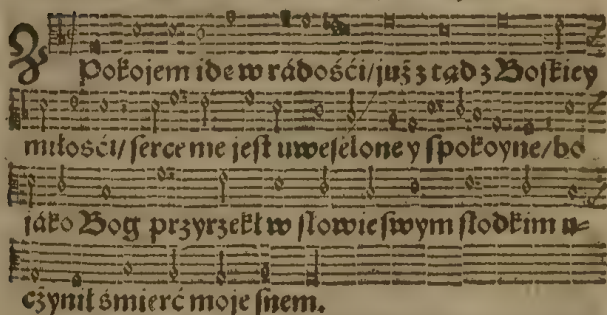 Z Pokojem ide w rádośći/już z tąd z Boſkiey
miłosći/ ſerce me jeſt uweſelone y ſpokoyne/bo
jáko Bog przyrzekł w ſłowie ſwym ſłodkim u-
czynił śmierć moje ſnem.